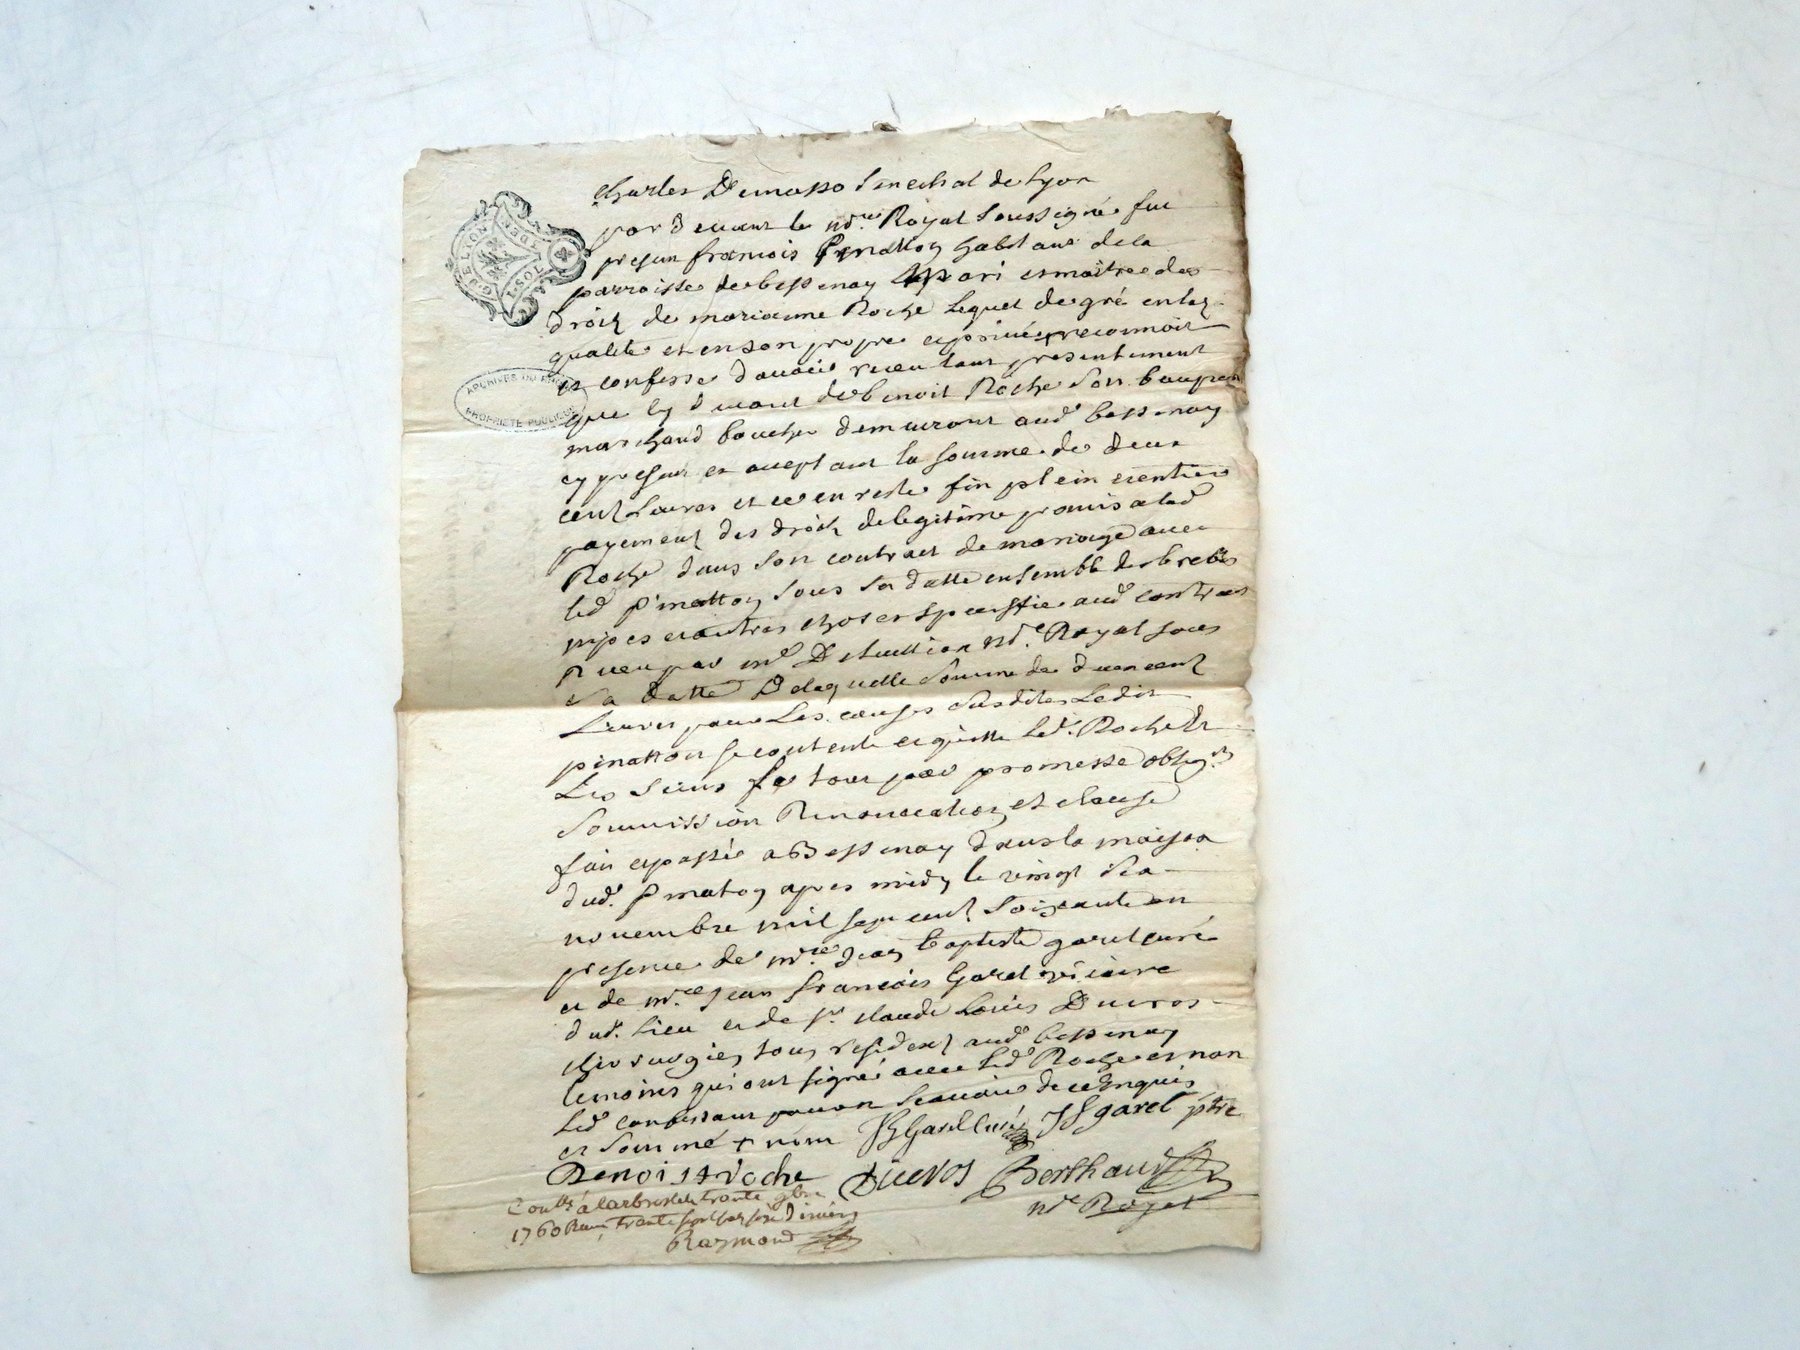 Charles Demasso Senechal de Lyon
par devant le no.re Royal soussigné fut
present francois Pinatton habitant de la
parroisse de bessenay mari et maitre des
droits de marianne Roche lequel de gré en lad.
qualité et en son propre et privé reconnoit
et confesse d'avoir receu tant presentement
que cy devant de benoit Roche son beaupere
marchand boucher demeurant aud. bessenay
cy present et acceptant la somme de deux
cent livres et ce en reste fin plein et entier
payement des droits de legitime promis a lad.
Roche dans son contract de mariage avec
led. pinatton sous sa datte ensemble des brebis
nipes et autres choses speciffié aud. contract
Receu par me. no.re Royal sous
sa datte De laquelle somme de deux cent
Livres pour Les causes susdites Ledit
pinatton se contente et quitte led. Roche Et
Les siens par promesse oblig.on
soumission Renonciation et clause
fait et passé a Bessenay dans la maison
dud. Pinaton apres midy le vingt
novembre mil sept cent soixante en
presence de m.re Jean baptiste garel curé
et de m.re Jean francois Garel vicaire
dud. Lieu et de sr. claude Louis Ducros
chirurgien tous residents aud. bessenay
temoins qui ont signé avec led. Roche et non
led. confessant pour ne scavoir de ce Enquis
et sommé + nom JB Garel Curé JF garel ptre
Benoist Roche Ducros Berthaud
no.re Royal
Con.lé a larbresle le trente 9bre
1760 Recu trente sept sols six deniers
Raymond
GEN DE LYON
1. SOL
ARCHIVES DU RHONE
PROPRIETE PUBLIQUE